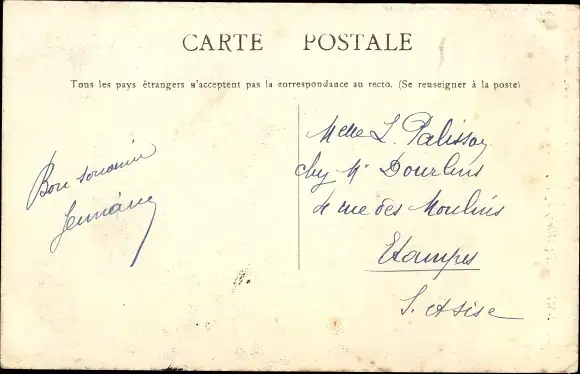 CARTE POSTALE
Tous les pays étrangers n'acceptent pas la correspondance au recto. (Se renseigner à la poste)
Bon souvenir
Germaine
Melle L. Palisson
chez Mr Dourlens
4 rue des Moulins
Etampes
S. et Oise